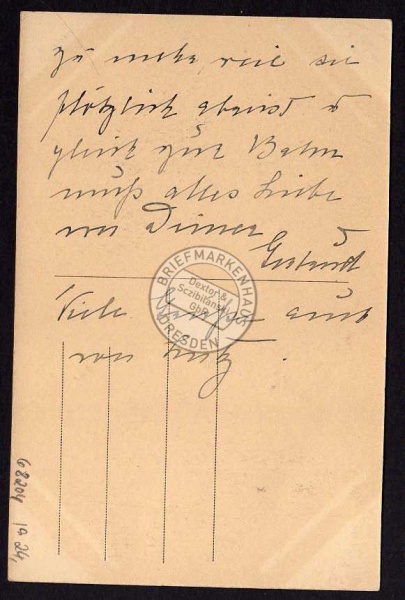 zu mehr weil sie
plötzlich abreist u
gleich zur Bahn
muß alles Liebe
von Deiner
Gertrud
Viele Grüße auch
von
BRIEFMARKENHAUS
Dextor &
Sczibilanski
GbR
DRESDEN
68204 19 24,